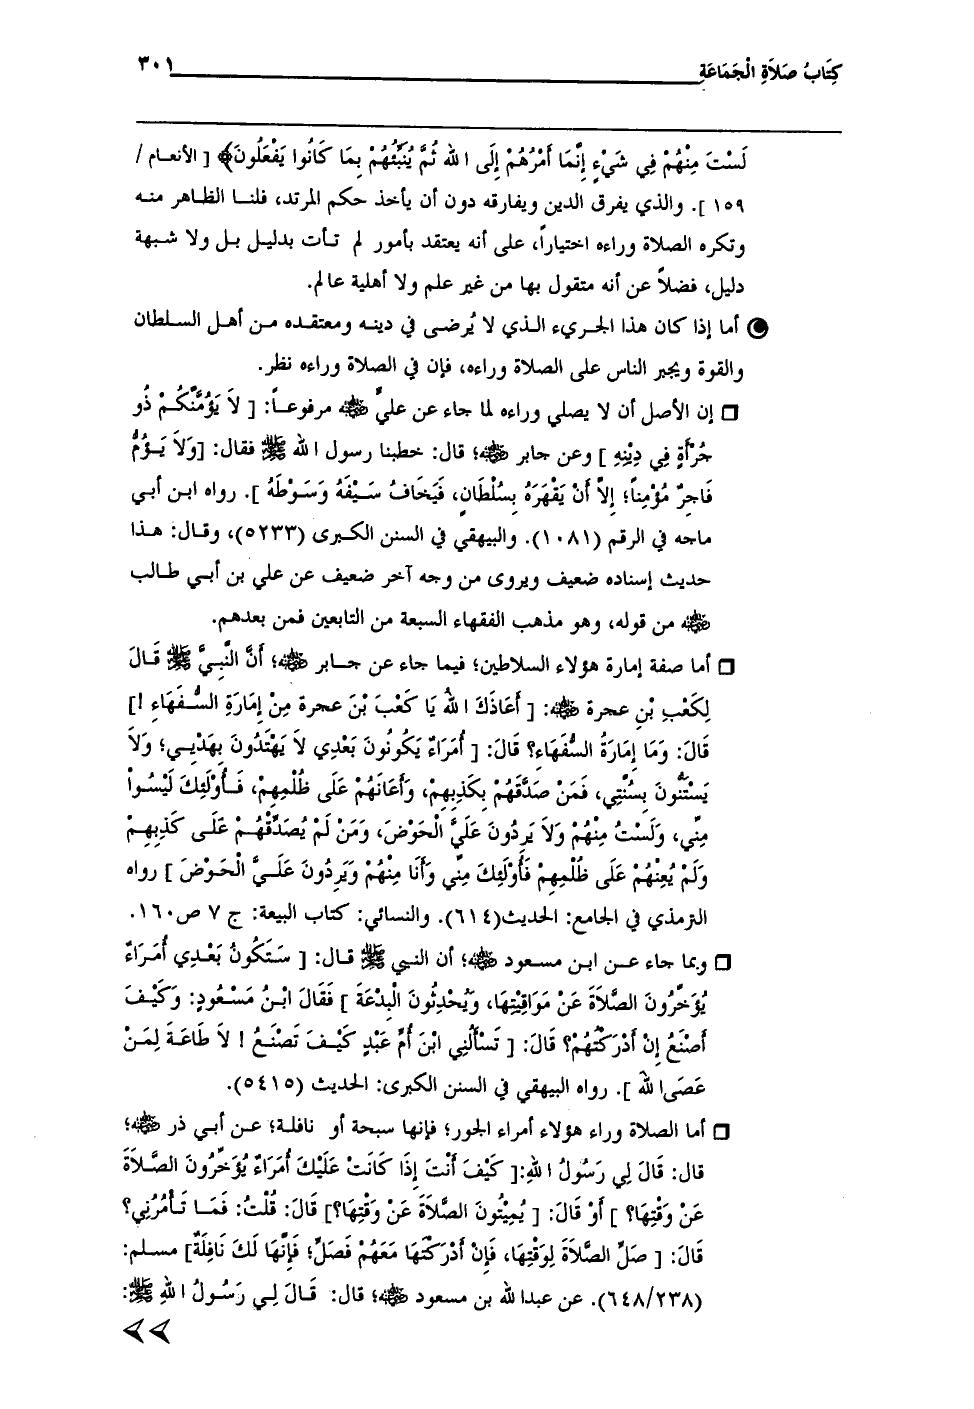 كِتَابُ صَلاَةِ الْجَمَاعَةِ ٣٠١
لَسْتَ مِنْهُمْ فِي شَيْءٍ إِنَّمَا أَمْرُهُمْ إِلَى اللهِ ثُمَّ يُنَبِّئُهُمْ بِمَا كَانُوا يَفْعَلُونَ﴾ [ الأنعام /
١٥٩ ]. والذي يفرق الدين ويفارقه دون أن يأخذ حكم المرتد، فلنا الظاهر منه
وتكره الصلاة وراءه اختياراً، على أنه يعتقد بأمور لم تأت بدليل بل ولا شبهة
دليل، فضلاً عن أنه متقول بها من غير علم ولا أهلية عالم.
أما إذا كان هذا الجريء الذي لا يُرضى في دينه ومعتقده من أهل السلطان
والقوة ويجبر الناس على الصلاة وراءه، فإن في الصلاة وراءه نظر.
❒ إن الأصل أن لا يصلي وراءه لما جاء عن عليٍّ ﷺ مرفوعاً: [ لاَ يَؤُمَّنَّكُمْ ذُو
جُرْأَةٍ فِي دِيْنِهِ ] وعن جابر ﷺ؛ قال: خطبنا رسول الله ﷺ فقال: [وَلاَ يَؤُمُّ
فَاجِرٌ مُؤْمِناً؛ إِلاَّ أَنْ يَقْهَرَهُ بِسُلْطَانٍ، فَيَخَافُ سَيْفَهُ وَسَوْطَهُ ]. رواه ابن أبي
ماجه في الرقم (١٠٨١). والبيهقي في السنن الكبرى (٥٢٣٣)، وقال: هذا
حديث إسناده ضعيف ويروى من وجه آخر ضعيف عن علي بن أبي طالب
ﷺ من قوله، وهو مذهب الفقهاء السبعة من التابعين فمن بعدهم.
❒ أما صفة إمارة هؤلاء السلاطين؛ فيما جاء عن جابر ﷺ؛ أَنَّ النَّبِيَّ ﷺ قَالَ
لِكَعْبِ بْنِ عجرة ﷺ: [ أَعَاذَكَ اللهُ يَا كَعْبَ بْنَ عجرة مِنْ إِمَارَةِ السُّفَهَاءِ !]
قَالَ: وَمَا إِمَارَةُ السُّفَهَاءِ؟ قَالَ: [ أُمَرَاءٌ يَكُونُونَ بَعْدِي لاَ يَهْتَدُونَ بِهَدْيِي؛ وَلاَ
يَسْتَنُّونَ بِسُنَّتِي، فَمَنْ صَدَّقَهُمْ بِكَذِبِهِمْ، وَأَعَانَهُمْ عَلَى ظُلْمِهِمْ، فَأُولَئِكَ لَيْسُواْ
مِنِّي، وَلَسْتُ مِنْهُمْ وَلاَ يَرِدُونَ عَلَيَّ الْحَوْضَ، وَمَنْ لَمْ يُصَدِّقْهُمْ عَلَى كَذِبِهِمْ
وَلَمْ يُعِنْهُمْ عَلَى ظُلْمِهِمْ فَأُولَئِكَ مِنِّي وَأَنَا مِنْهُمْ وَيَرِدُونَ عَلَيَّ الْحَوْضَ ] رواه
الترمذي في الجامع: الحديث(٦١٤). والنسائي: كتاب البيعة: ج ٧ ص١٦٠.
❒ وبما جاء عن ابن مسعود ﷺ؛ أن النبي ﷺ قال: [ سَتَكُونُ بَعْدِي أُمَرَاءٌ
يُؤَخِّرُونَ الصَّلاَةَ عَنْ مَوَاقِيْتِهَا، وَيُحْدِثُونَ الْبِدْعَةَ ] فَقَالَ ابْنُ مَسْعُودٍ: وَكَيْفَ
أَصْنَعُ إِنْ أَدْرَكْتُهُمْ؟ قَالَ: [ تَسْأَلُنِي ابْنَ أُمِّ عَبْدٍ كَيْفَ تَصْنَعُ ! لاَ طَاعَةَ لِمَنْ
عَصَى اللهَ ]. رواه البيهقي في السنن الكبرى: الحديث (٥٤١٥).
❒ أما الصلاة وراء هؤلاء أمراء الجور؛ فإنها سبحة أو نافلة؛ عن أبي ذر ﷺ؛
قال: قَالَ لِي رَسُولُ اللهِ:[ كَيْفَ أَنْتَ إِذَا كَانَتْ عَلَيْكَ أُمَرَاءٌ يُؤَخِّرُونَ الصَّلاَةَ
عَنْ وَقْتِهَا؟ ] أَوْ قَالَ: [ يُمِيْتُونَ الصَّلاَةَ عَنْ وَقْتِهَا؟] قَالَ: قُلْتُ: فَمَا تَأْمُرُنِي؟
قَالَ: [ صَلِّ الصَّلاَةَ لِوَقْتِهَا، فَإِنْ أَدْرَكْتَهَا مَعَهُمْ فَصَلِّ؛ فَإِنَّهَا لَكَ نَافِلَةٌ] مسلم:
(٦٤٨/٢٣٨). عن عبدالله بن مسعود ﷺ؛ قال: قَالَ لِي رَسُولُ اللهِ ﷺ: